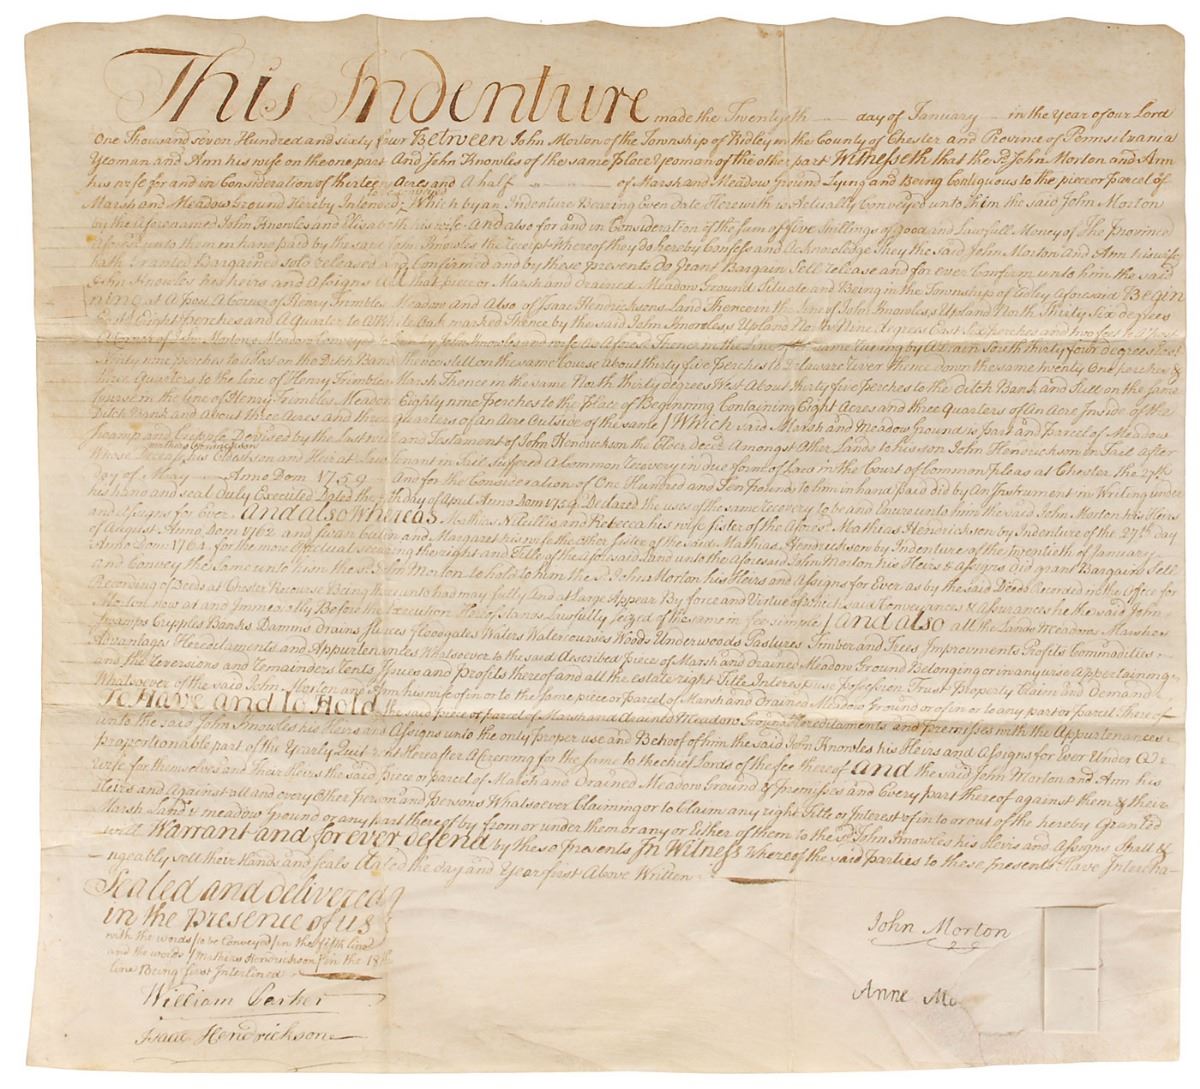 This Indenture made the Twentyeth day of January in the Year of our Lord
One Thousand seven Hundred and sixty four Between John Morton of the Township of Ridley in the County of Chester and Province of Pennsilvania
Yeoman and Ann his wife on the one part And John Knowles of the same place Yeoman of the other part Witnesseth that the Sd. John Morton and Ann
his wife for and in Consideration of thirteen Acres and A half of Marsh and Meadow Ground Lying and Being Contiguous to the piece or parcel of
Marsh and Meadow Ground Hereby Intended to be Conveyed Which by an Indenture Bearing Even date Herewith is Actually Conveyed unto him the said John Morton
by the aforenamed John Knowles and Elisabeth his wife And also for and in Consideration of the sum of five Shillings of good and Lawfull Money of The Province
aforesd. unto them en hand paid by the said John Knowles the receipt whereof they do hereby Confess and Acknowledge They the said John Morton and Ann his wife
hath Granted Bargained sold released and Confirmed and by these presents Do Grant Bargain Sell release and for ever Confirm unto him the said
John Knowles his heirs and Assigns All that piece or Marsh and Drained Meadow Ground Situate and Being in the Township of Ridley Aforesaid Begin
ning at A post A Corner of Henry Trimbles Meadow And Also of Isaac Hendricksons Land Thence in the line of John Knowles's Upland North Thirty Six degrees
East Eight perches and A Quarter to A White Oak marked Thence by the said John Knowles's Upland North Nine degrees East Six Perches and two feet to A post
A Corner of John Mortons Meadow Conveyed to by John Knowles and wife as Aforesd. Thence in the Line of the same South thirty four degrees East
Eighty nine perches to A post on the Ditch Bank thence still on the same Course About thirty five Perches to Delaware River thence Down the same twenty One perches &
three Quarters to the line of Henry Trimbles Marsh Thence in the same North thirty degrees West About thirty five perches to the ditch Bank and Still on the same
Course in the line of Henry Trimbles Meadow Eighty nine Perches to the Place of Beginning Containing Eight Acres and three Quarters of An Acre Inside of the
Ditch Bank and About three Acres and three Quarters of An Acre Outside of the same / Which said Marsh and Meadow Ground is part and Parcel of Meadow
Swamp and Cripple Devised by the Last will and Testament of John Hendrickson the Elder Decd. Amongst Other Lands to his son John Hendrickson in Tail after
Whose Decease his Eldest son Mathias Hendrickson and Heir at Law Tenant in Tail Suffered A Common Recovery in due form of Law in the Court of Common Pleas at Chester the 27th
day of May Anno Dom 1759 And for the Consideration of One Hundred and Ten Pounds to him in hand Paid did by An Instrument in Writing under
his hand and seal Duly Executed Dated the day of April Anno Dom 1759 Declared the uses of the same recovery to be and Enure unto him the said John Morton his Heirs
and Assigns for Ever And also Whereas Mathias and Rebecca his wife sister of the Aforesd. Mathias Hendrickson by Indenture of the 27th day
of August Anno Dom 1762 and and Margaret his wife the other sister of the said Mathias Hendrickson by Indenture of the Twentieth of January
Anno Dom: 1764 for the more Effectual securing the right and Title of the aforesaid Land unto the aforesaid John Morton his Heirs & Assigns did grant Bargain Sell
and Convey the same unto him the sd. John Morton to hold to him the sd. John Morton his Heirs and Assigns for Ever as by the said Deeds Recorded in the Office for
Recording of Deeds at Chester Recourse Being thereunto had may fully And at large Appear By force and Virtue of which said Conveyances & Assurances he the said John
Morton now at and Immediatly Before the Execution Hereof stands Lawfully Seized of the same in fee simple / And also all the Lands Meadows Marshes
Swamps Cripples Banks Damms Drains sluices floodgates Waters Watercourses Woods Underwoods Pastures Timber and Trees Improvments Profits Commodities
Advantages Hereditaments and Appurtenances Whatsoever to the said described Piece of Marsh and Drained Meadow Ground Belonging or in any wise Appertaining
and the Reversions and Remainders Rents Issues and Profits thereof and all the estate right Title Interest use Possession Trust Property Claim and Demand
Whatsoever of the said John Morton and Ann his wife of in or to the same piece or parcel of Marsh and Drained Meadow Ground or of in or to any part or parcel There of
To Have and to Hold the said piece or parcel of Marsh and drained Meadow Ground Hereditaments and premisses with the Appurtenances
unto the said John Knowles his Heirs and Assigns unto the only proper use and Behoof of him the said John Knowles his Heirs and Assigns for Ever Under A
proportionable part of the Yearly Quit rent Hereafter Accrewing for the same to the chief Lords of the fee thereof And the said John Morton and Ann his
Wife for themselves and Their Heirs the said Piece or parcel of Marsh and Drained Meadow Ground & Premisses and Every part thereof against them & their
Heirs and Against all and every Other person and Persons Whatsoever Claiming or to Claim any right Title or Interest of in to or out of the hereby Granted
Marsh Land & meadow Ground or any part thereof by from or under them or any or Either of them to the sd. John Knowles his Heirs and Assigns Shall &
will Warrant and forever defend by these Presents In Witness Whereof the said parties to these presents Have Intercha-
-ngeably sett their Hands and seals Dated the day and Year first Above Written
Sealed and delivered
in the presence of us
with the words / to be Conveyed / in the fifth line
and the words / Mathias Hendrickson / in the 18th
line Being first Interlined
William Parker
Isaac Hendrickson
John Morton
Anne Mo